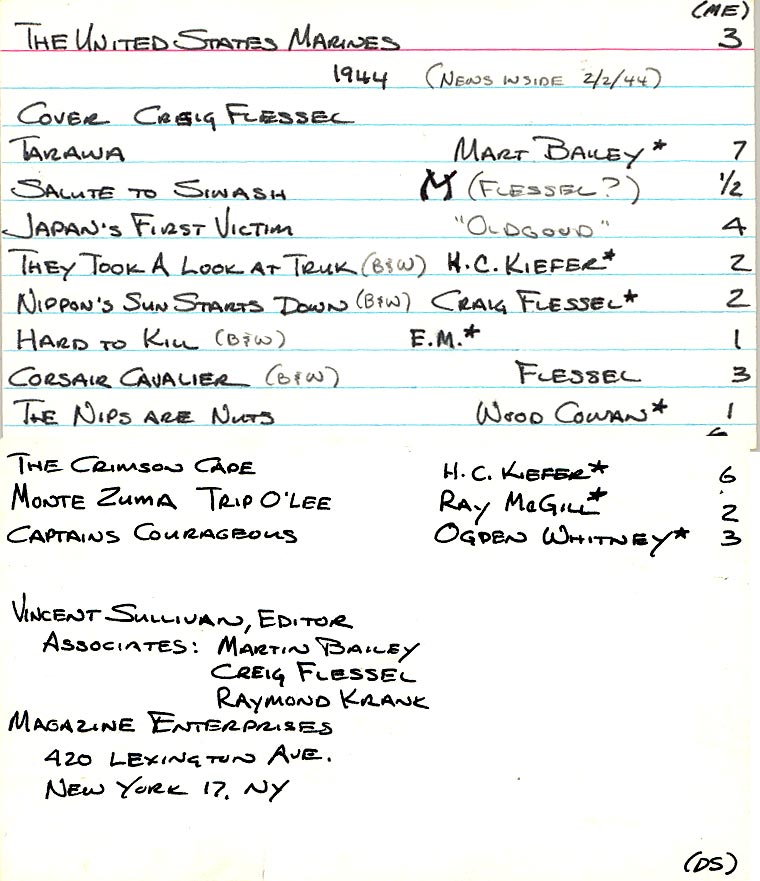 (ME)
THE UNITED STATES MARINES 3
1944 (NEWS INSIDE 2/2/44)
COVER CREIG FLESSEL
TARAWA MART BAILEY* 7
SALUTE TO SIWASH (FLESSEL?) 1/2
JAPAN'S FIRST VICTIM "OLDGOUD" 4
THEY TOOK A LOOK AT TRUK (B&W) H.C. KIEFER* 2
NIPPON'S SUN STARTS DOWN (B&W) CRAIG FLESSEL* 2
HARD TO KILL (B&W) E.M.* 1
CORSAIR CAVALIER (B&W) FLESSEL 3
THE NIPS ARE NUTS WOOD COWAN* 1
THE CRIMSON CAPE H.C. KIEFER* 6
MONTE ZUMA TRIP O'LEE RAY McGILL* 2
CAPTAINS COURAGEOUS OGDEN WHITNEY* 3
VINCENT SULLIVAN, EDITOR
ASSOCIATES: MARTIN BAILEY
CREIG FLESSEL
RAYMOND KRANK
MAGAZINE ENTERPRISES
420 LEXINGTON AVE.
NEW YORK 17, NY
(DS)